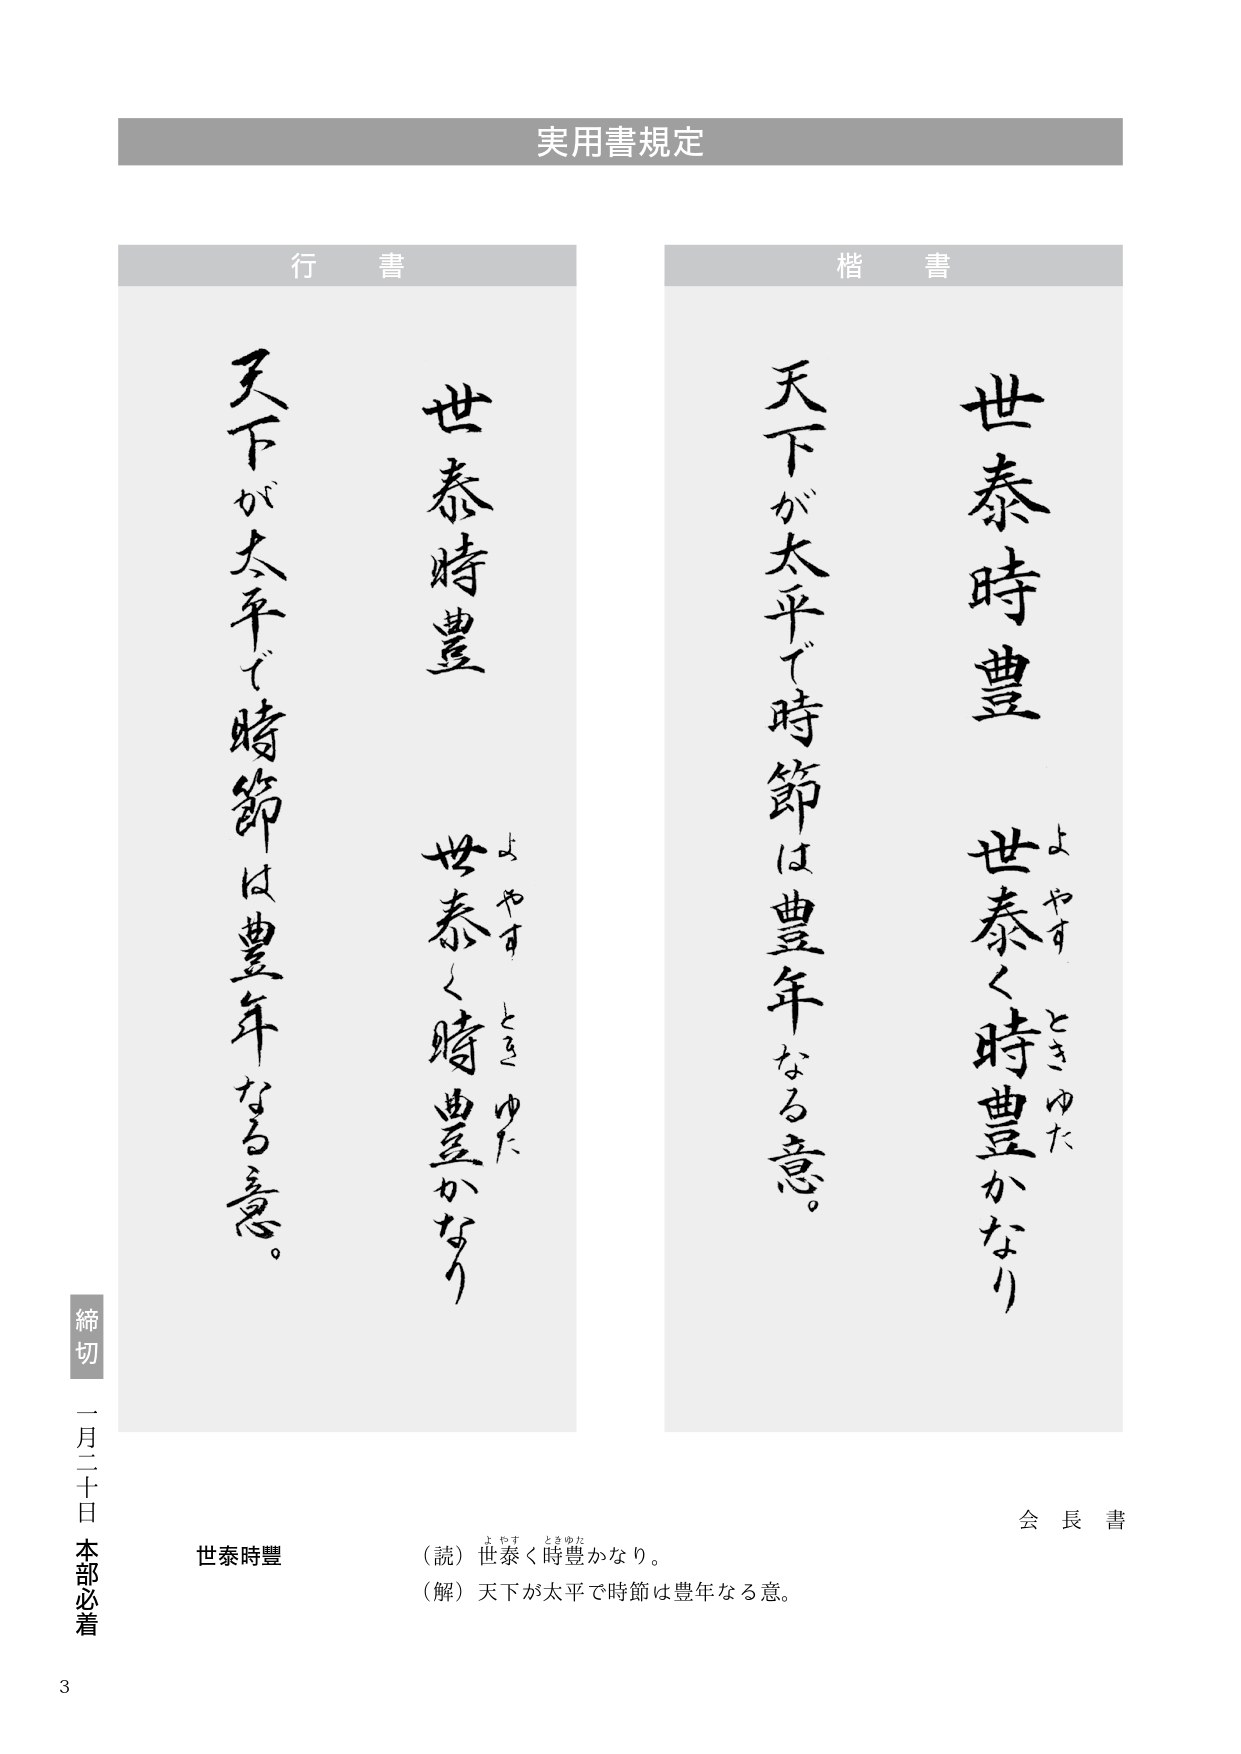 実用書規定
楷書
世泰時豊 世泰く時豊かなり
よ やす とき ゆた
天下が太平で時節は豊年なる意。
行書
世泰時豊 世泰く時豊かなり
よ やす とき ゆた
天下が太平で時節は豊年なる意。
会長書
世泰時豐
よ やす ときゆた
（読）世泰く時豊かなり。
（解）天下が太平で時節は豊年なる意。
締切 一月二十日 本部必着
3